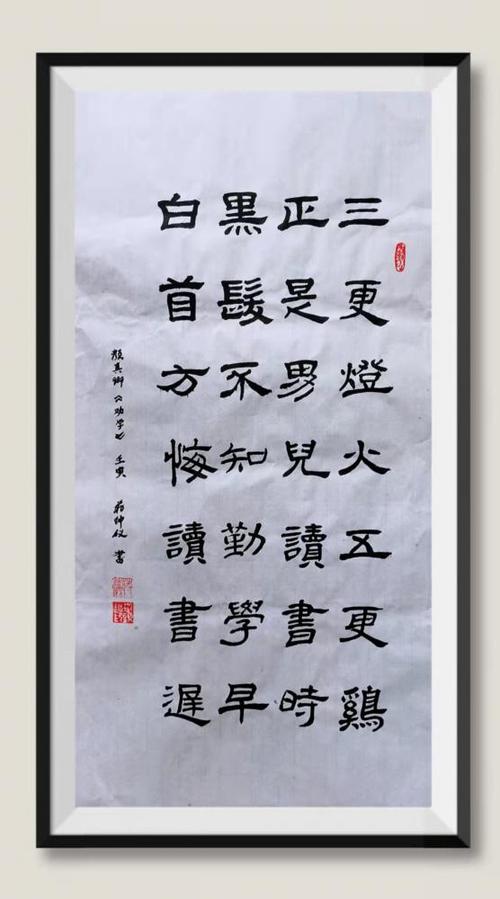 三更燈火五更鷄
正是男兒讀書時
黑髮不知勤學早
白首方悔讀書遲
顏真卿《劝学》 壬寅 仪書